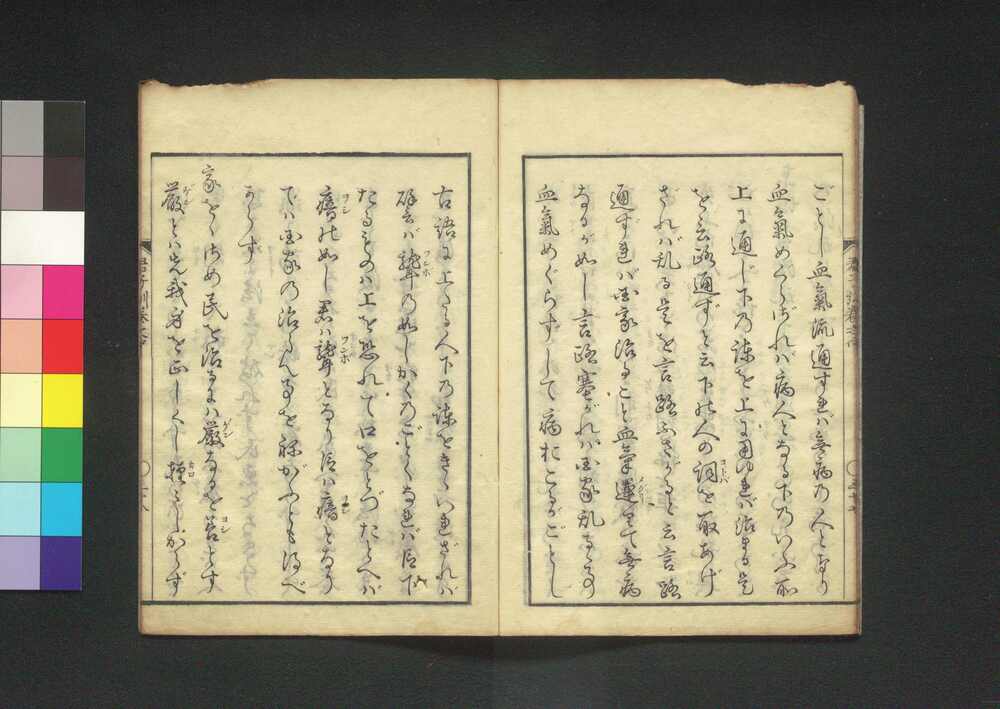 ごとし血氣流通すれば無病の人となり
血氣めぐらざれば病人となる下のいふ所
上に通じ下の諫を上に用ゆれば治まる是
を言路通ずと云下の人の詞を取あげ
ざれば乱る是を言路ふさがると云言路
通ずれば国家治ること血氣運て無病
なるが如し言路塞がれば国家乱るゝ事
血氣めぐらずして病おこるがごとし
古語に上たる人下の諫をきゝいれざれば
聾の如しかくのごとくなれば臣下
たるものハ上を恐れて口をとづたとへば
瘖の如し君ハ聾となり臣ハ瘖となり
てハ国家の治らん事を願がふとも得べ
からず
家をおさめ民を治るにハ厳なるを善とす
厳とハ先我身を正しくし軽々しからず